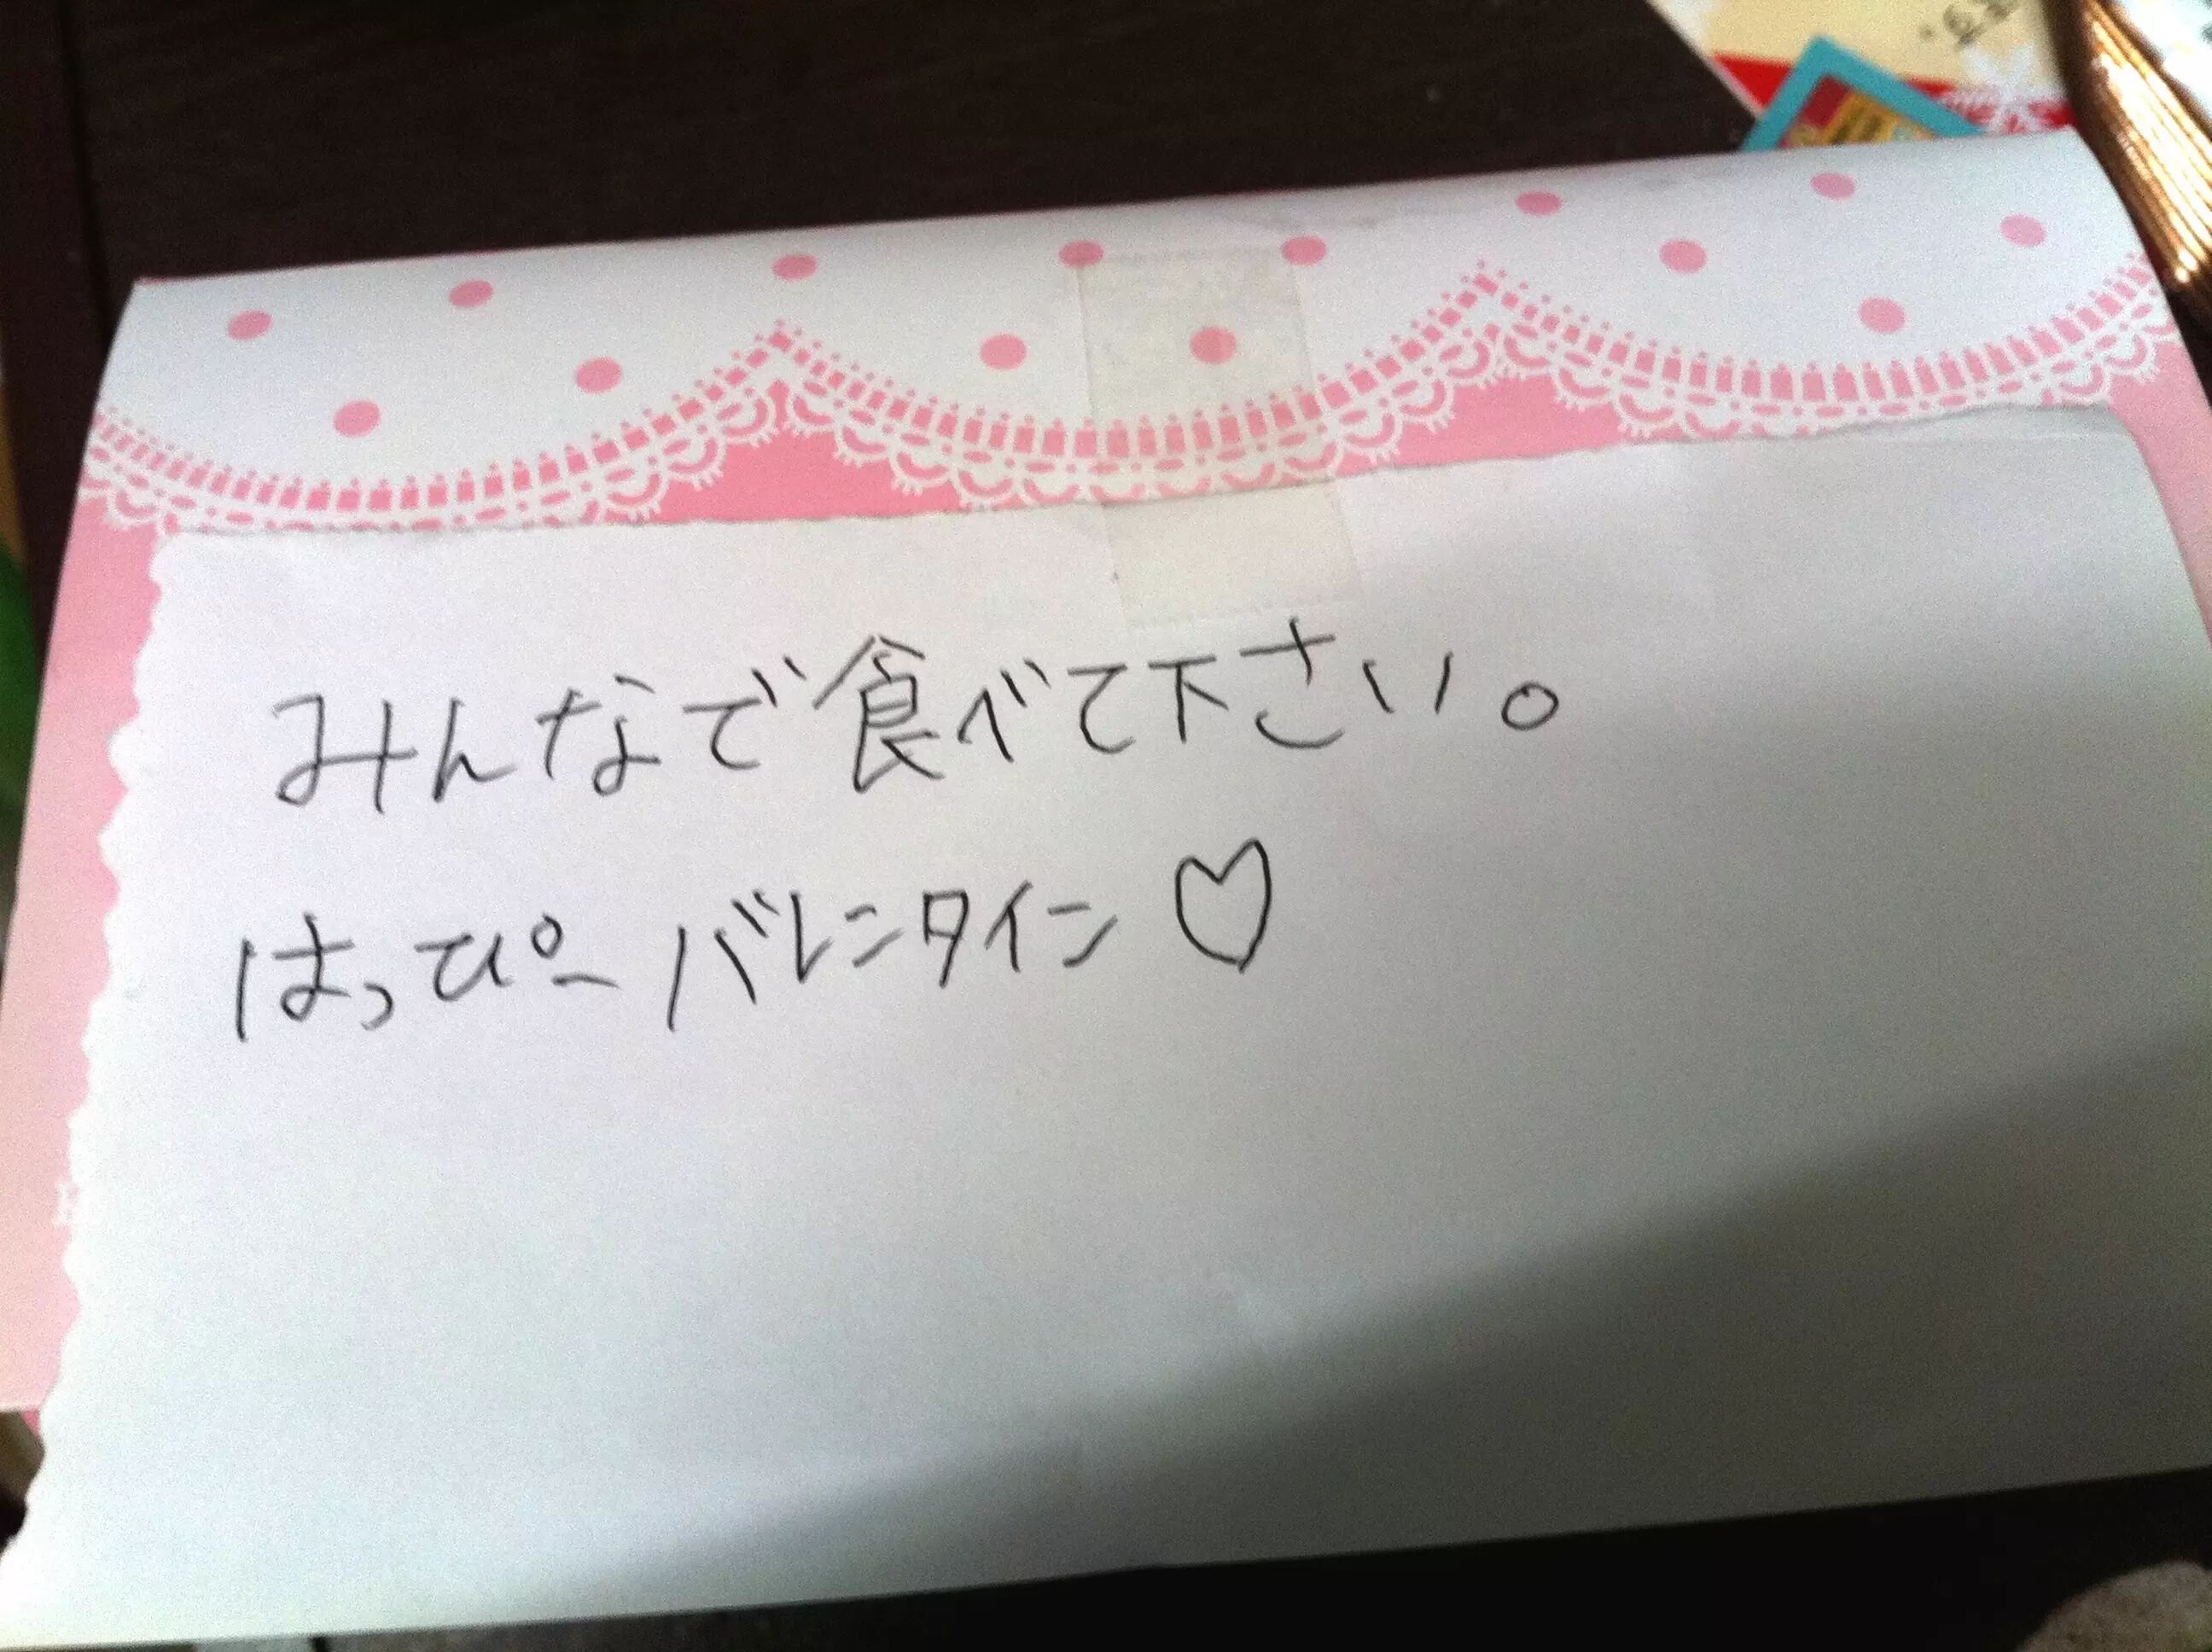 みんなで食べて下さい。
はっぴーバレンタイン♡